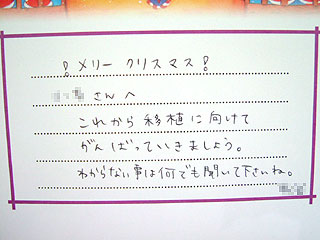 !メリー クリスマス!
さんへ
これから移植に向けて
がんばっていきましょう。
わからない事は何でも聞いて下さいね。